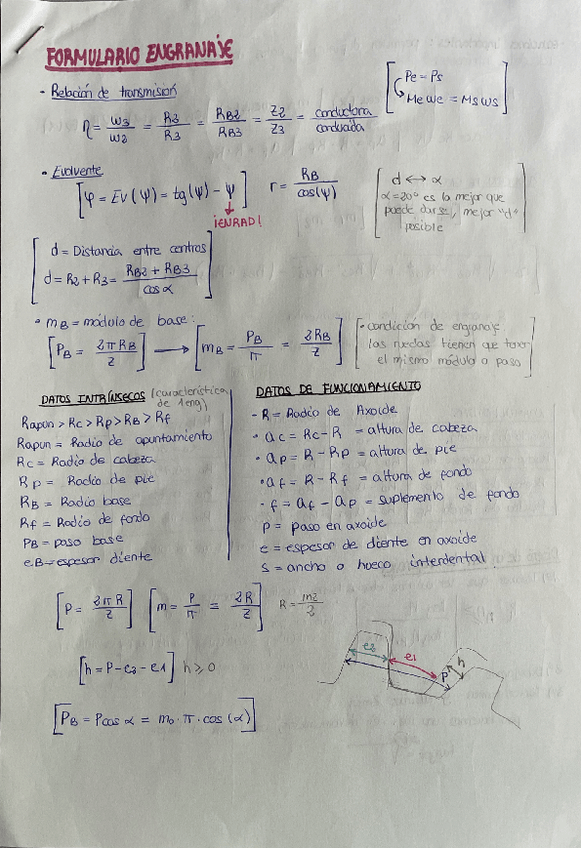 FORMULARIO ENGRANAJE
· Relación de transmisión
η = ω3/ω2 = R2/R3 = RB2/RB3 = Z2/Z3 = conductora/conducida
Pe = Ps
Me ωe = Ms ωs
· Evolvente
[φ = Ev(ψ) = tg(ψ) - ψ] r = RB/cos(ψ)
¡EN RAD!
d ↔ α
α = 20° es la mejor que
puede darse, mejor "d"
posible
d = Distancia entre centros
d = R2 + R3 = (RB2 + RB3)/cos α
· mB = módulo de base:
[PB = 2πRB/Z] → [mB = PB/π = 2RB/Z]
· condición de engranaje:
las ruedas tienen que tener
el mismo módulo o paso
DATOS INTRÍNSECOS (característica de 1 eng)
Rapun > Rc > Rp > RB > Rf
Rapun = Radio de apuntamiento
Rc = Radio de cabeza
Rp = Radio de pie
RB = Radio base
Rf = Radio de fondo
PB = paso base
eB = espesor diente
DATOS DE FUNCIONAMIENTO
- R = Radio de Axoide
· ac = Rc - R = altura de cabeza
· ap = R - Rp = altura de pie
· af = R - Rf = altura de fondo
· f = af - ap = suplemento de fondo
p = paso en axoide
e = espesor de diente en axoide
s = ancho o hueco interdental
[P = 2πR/Z] [m = P/π = 2R/Z] R = mz/2
[h = P - e2 - e1] h ≥ 0
e2 e1 P h
[PB = P cos α = mo · π · cos(α)]